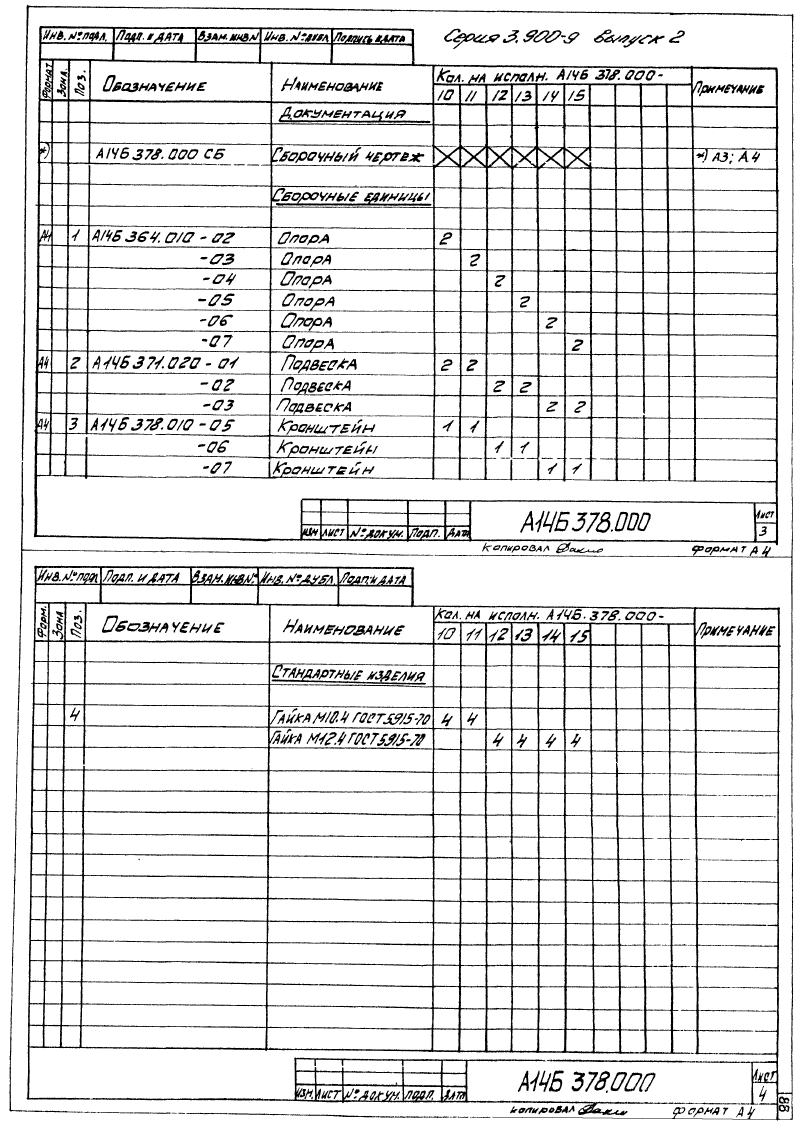 Инв. № подл. Подп. и дата Взам. инв. № Инв. № дубл. Подпись и дата Серия 3.900-9 выпуск 2
Формат Зона. Поз. Обозначение Наименование Кол. на исполн. А14Б 378.000- Примечание
10 11 12 13 14 15
Документация
*) А14Б 378.000 СБ Сборочный чертеж *) А3; А4
Сборочные единицы
А4 1 А14Б 364.010 - 02 Опора 2
-03 Опора 2
-04 Опора 2
-05 Опора 2
-06 Опора 2
-07 Опора 2
А4 2 А14Б 371.020 - 01 Подвеска 2 2
-02 Подвеска 2 2
-03 Подвеска 2 2
А4 3 А14Б 378.010 - 05 Кронштейн 1 1
-06 Кронштейн 1 1
-07 Кронштейн 1 1
Изм Лист № докум. Подп. Дата А14Б 378.000 Лист 3
Копировал Формат А4
Инв. № подл Подп. и дата Взам. инв № Инв. № дубл Подп. и дата
Форм. Зона Поз. Обозначение Наименование Кол. на исполн. А14Б. 378.000- Примечание
10 11 12 13 14 15
Стандартные изделия
4 Гайка М10.4 ГОСТ 5915-70 4 4
Гайка М12.4 ГОСТ 5915-70 4 4 4 4
Изм. Лист № докум. Подп. Дата А14Б 378.000 Лист 4
Копировал Формат А4
88